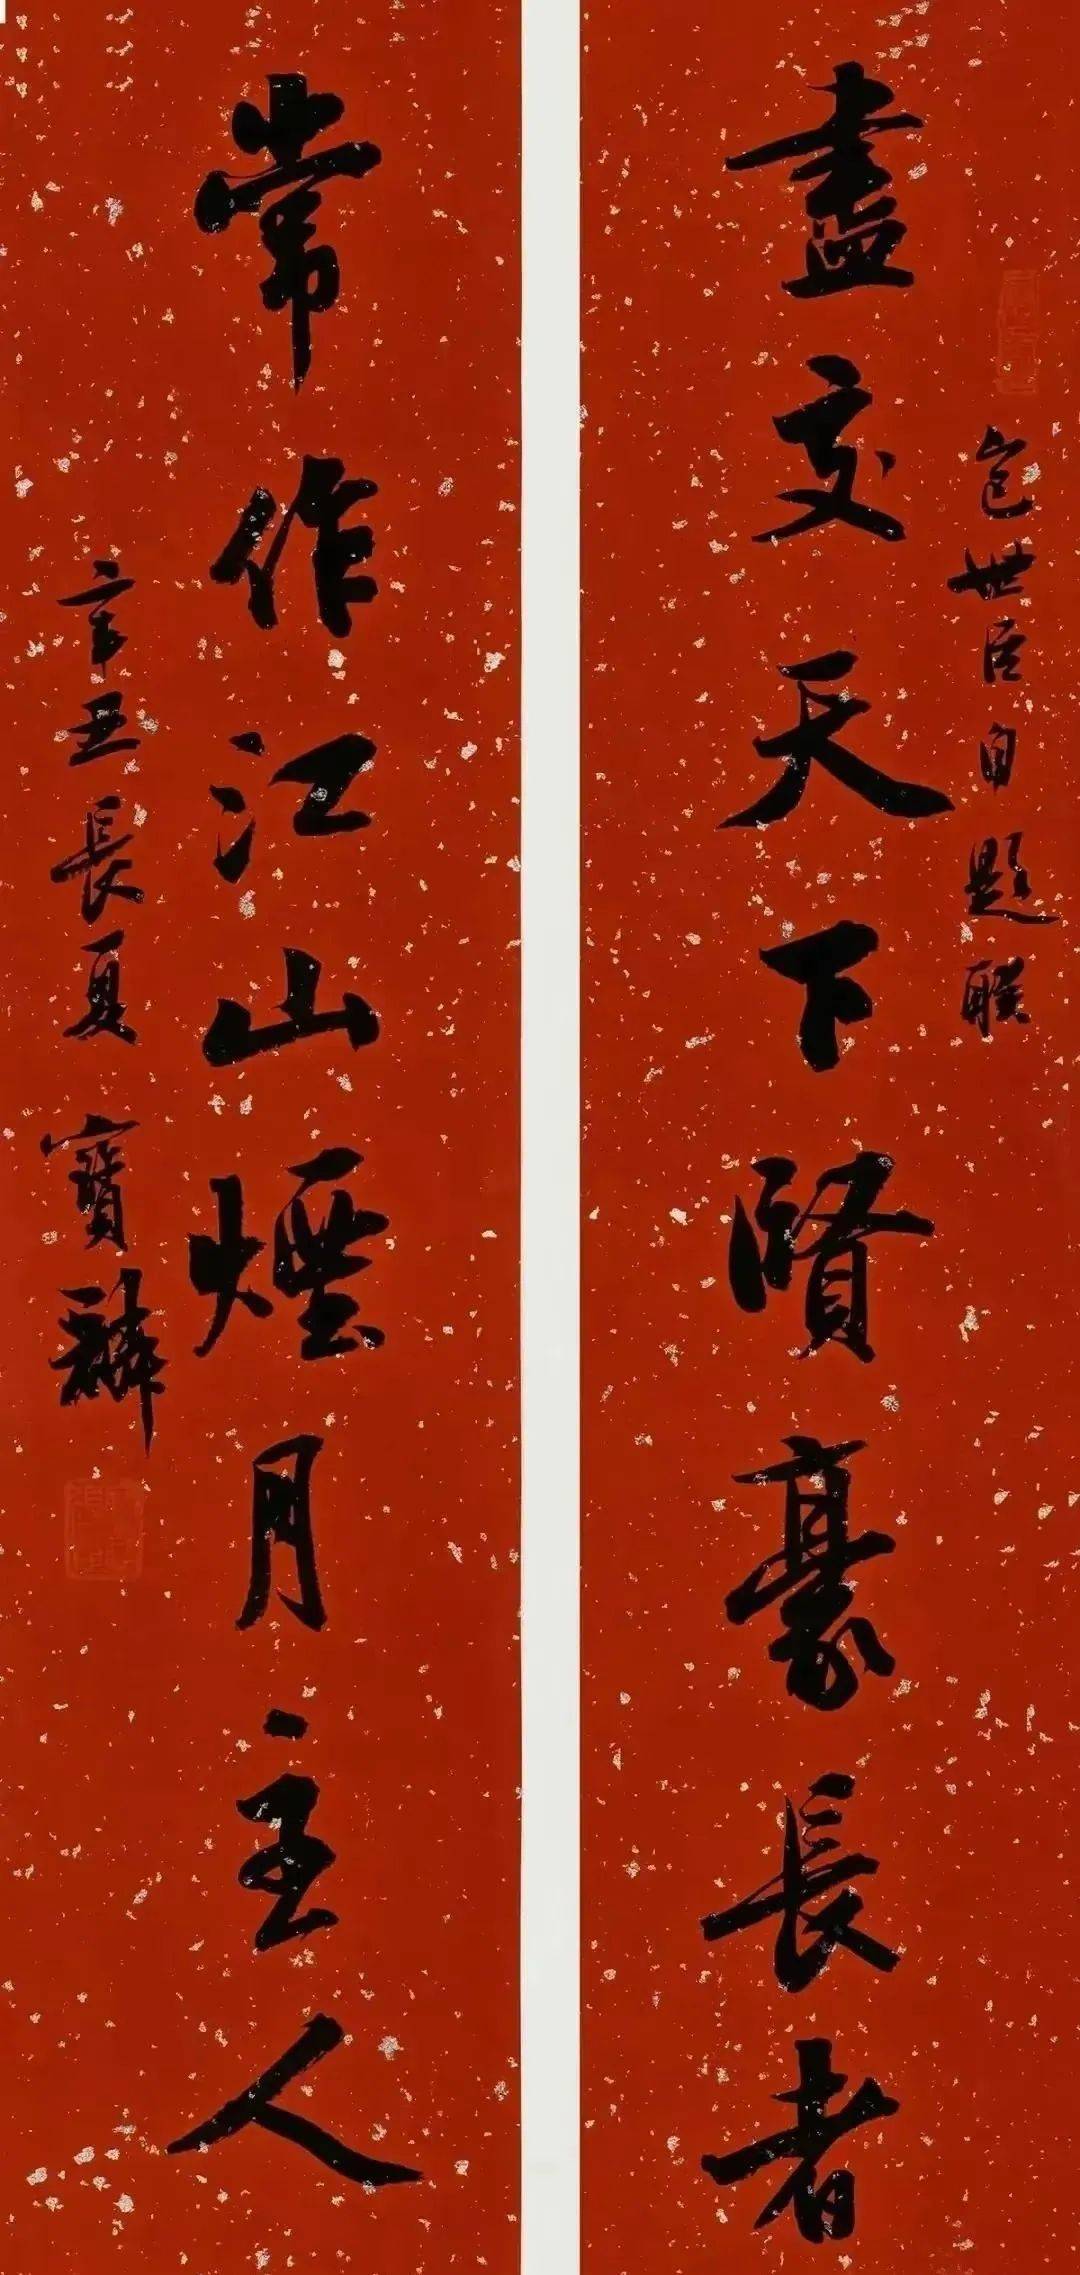 包世臣自題联
盡交天下賢豪長者
常作江山煙月主人
辛丑長夏 寶麟